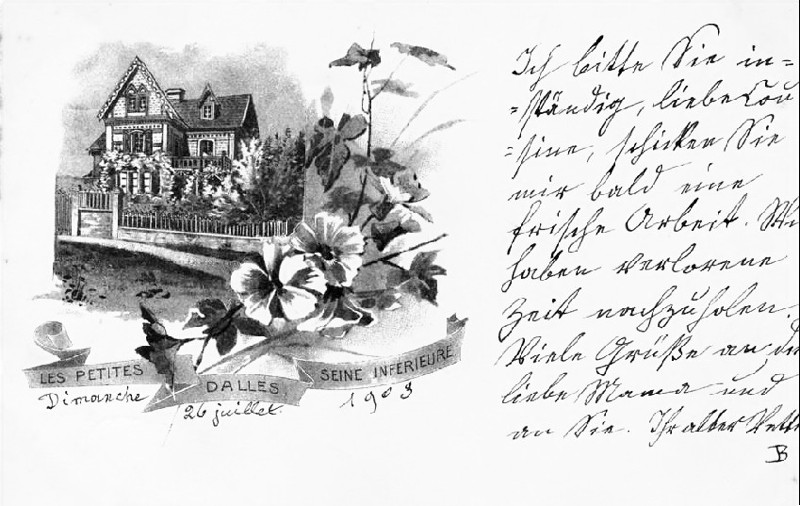 LES PETITES DALLES SEINE INFERIEURE
Dimanche 26 juillet. 1903
Ich bitte Sie in=
=ständig, liebe Cou
=sine, schicken Sie
mir bald eine
frische Arbeit. Wi
haben verlorene
Zeit nachzuholen.
Viele Grüße an di
liebe Mama und
an Sie. Ihr alter Vette
B